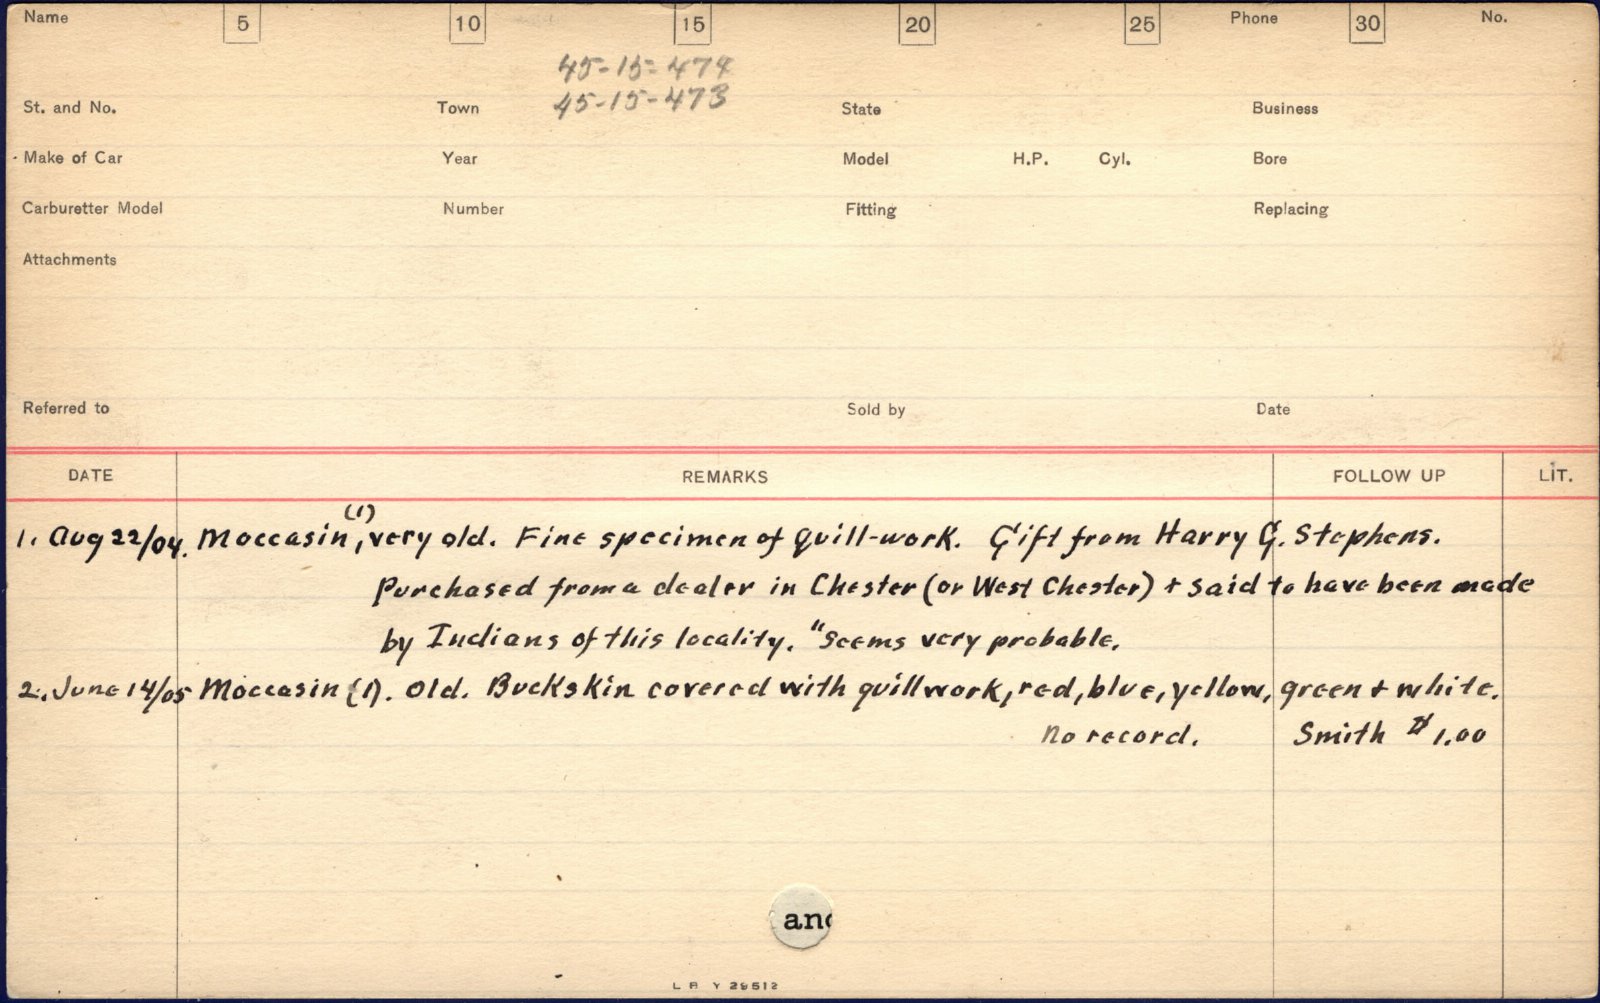 Name 5 10 15 20 25 Phone 30 No.
45-15-474
St. and No. Town 45-15-473 State Business
Make of Car Year Model H.P. Cyl. Bore
Carburetter Model Number Fitting Replacing
Attachments
Referred to Sold by Date
DATE REMARKS FOLLOW UP LIT.
1. Aug 22/04. Moccasin (1), very old. Fine specimen of quill-work. Gift from Harry G. Stephens.
Purchased from a dealer in Chester (or West Chester) + said to have been made
by Indians of this locality. "Seems very probable.
2. June 14/05 Moccasin (1). Old. Buckskin covered with quillwork, red, blue, yellow, green + white.
No record. Smith $1.00
and
L B Y 29512